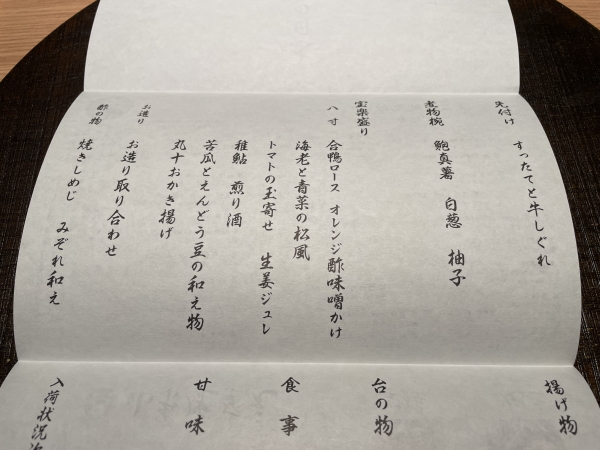 先付け
すったてと牛しぐれ
煮物椀
鮑真薯 白葱 柚子
宝楽盛り
八寸 合鴨ロース オレンジ酢味噌かけ
海老と青菜の松風
トマトの玉寄せ 生姜ジュレ
稚鮎 煎り酒
苦瓜とえんどう豆の和え物
丸十おかき揚げ
お造り
お造り取り合わせ
酢の物
焼きしめじ みぞれ和え
揚げ物
台の物
食事
甘味
入荷状況